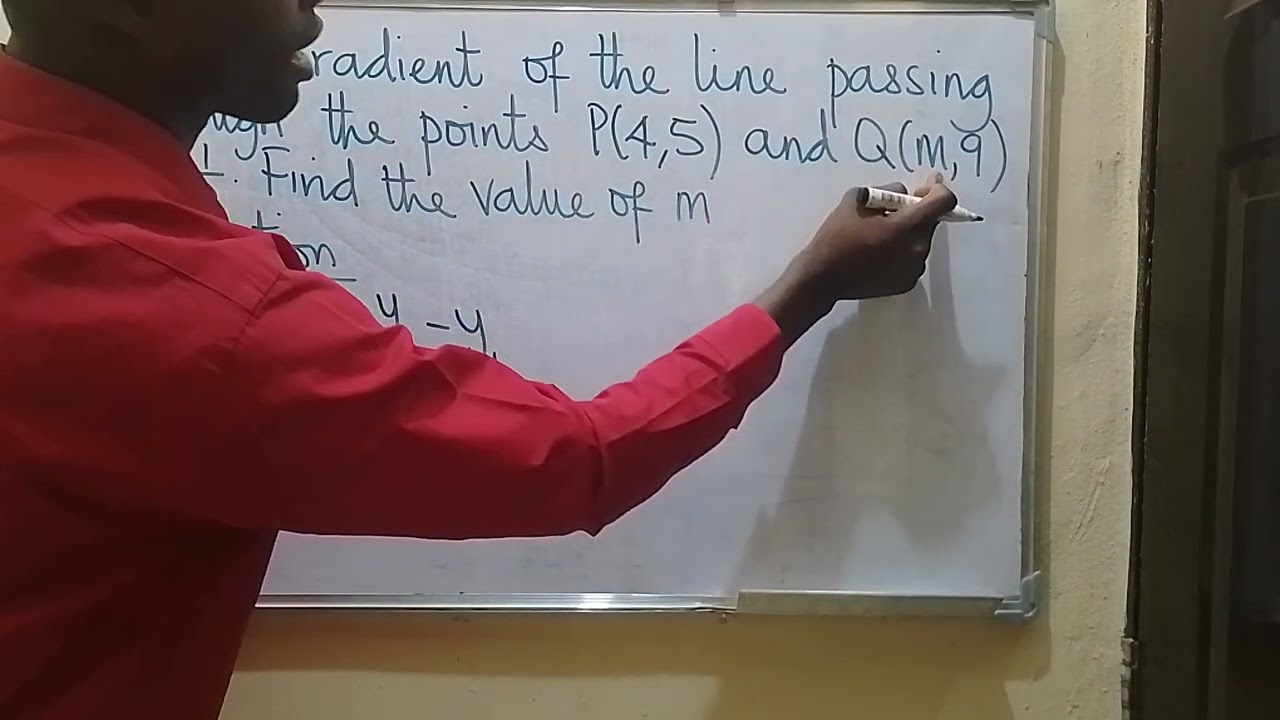 radient of the line passing
ugh the points P(4,5) and Q(m,9)
. Find the value of m
tion
y - y₁